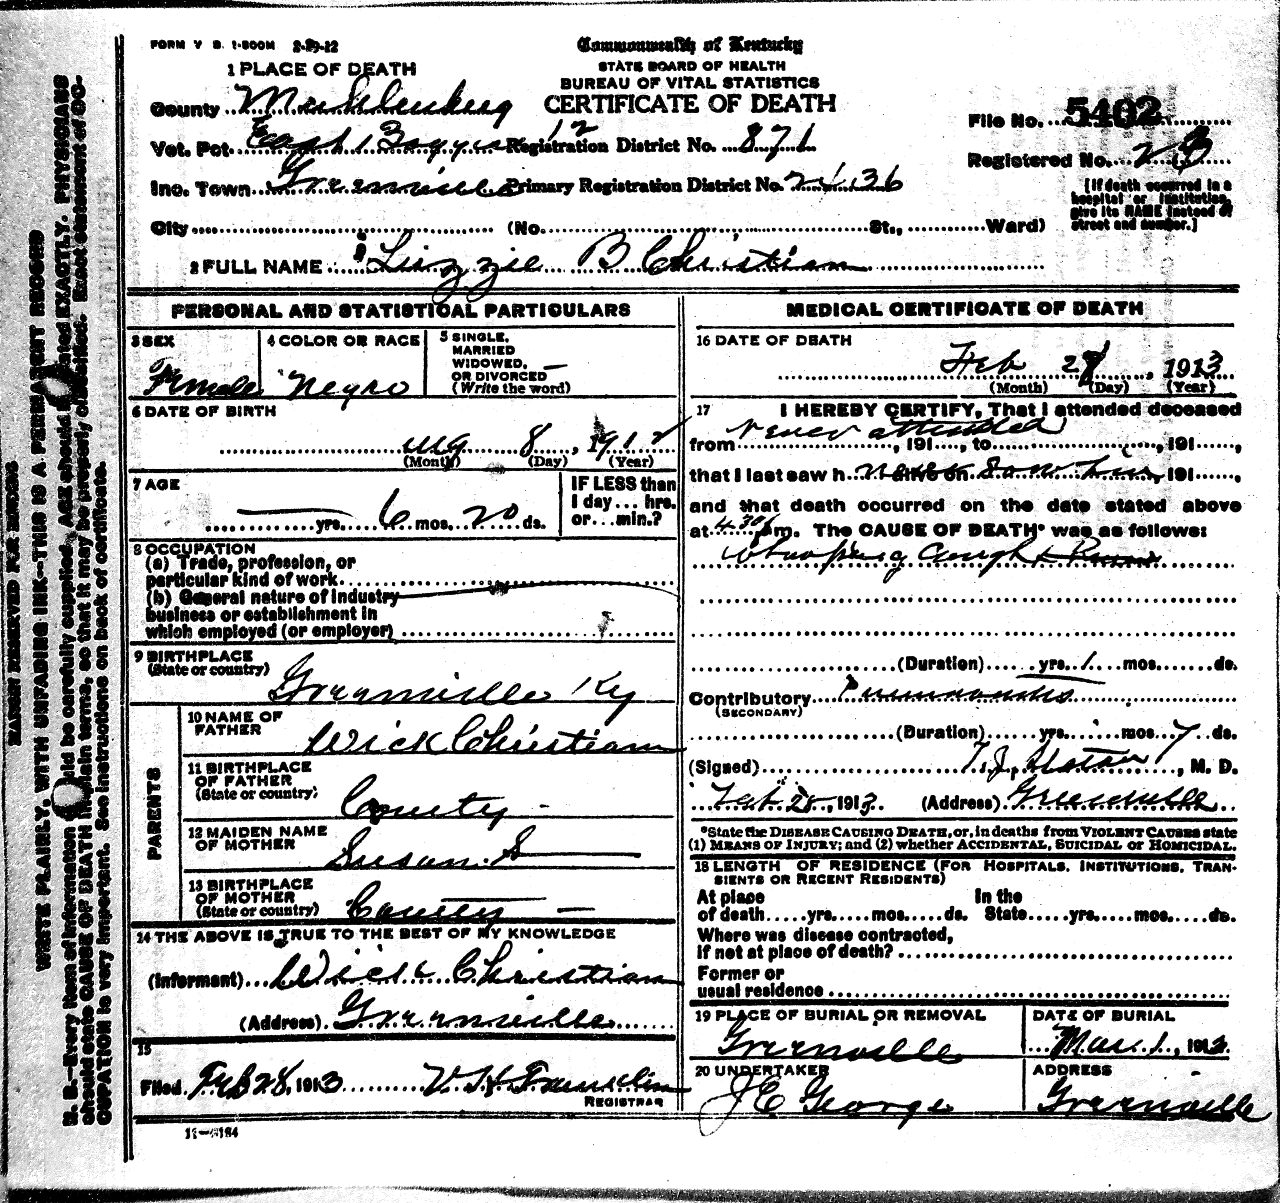 FORM V B. 1-500M 2-29-12
Commonwealth of Kentucky
STATE BOARD OF HEALTH
BUREAU OF VITAL STATISTICS
CERTIFICATE OF DEATH
1 PLACE OF DEATH
County Muhlenberg
Vot. Pct East Registration District No. 871
12
Inc. Town Greenville Primary Registration District No. 2436
City (No. St., Ward)
File No. 5402
Registered No. 23
[If death occurred in a hospital or institution, give its NAME instead of street and number.]
2 FULL NAME Lizzie B Christian
PERSONAL AND STATISTICAL PARTICULARS
3 SEX
Female
4 COLOR OR RACE
Negro
5 SINGLE,
MARRIED
WIDOWED, —
OR DIVORCED
(Write the word)
6 DATE OF BIRTH
Aug 8, 1912
(Month) (Day) (Year)
7 AGE
— yrs. 6 mos. 20 ds.
IF LESS than
1 day ... hrs.
or ... min.?
8 OCCUPATION
(a) Trade, profession, or
particular kind of work
(b) General nature of industry
business or establishment in
which employed (or employer)
9 BIRTHPLACE
(State or country)
Greenville Ky
PARENTS
10 NAME OF
FATHER
Wick Christian
11 BIRTHPLACE
OF FATHER
(State or country)
County -
12 MAIDEN NAME
OF MOTHER
Susan. S
13 BIRTHPLACE
OF MOTHER
(State or country)
County —
14 THE ABOVE IS TRUE TO THE BEST OF MY KNOWLEDGE
(Informant) Wick Christian
(Address) Greenville
15
Filed Feb 28, 1913 V. H Franklin
REGISTRAR
11-5184
MEDICAL CERTIFICATE OF DEATH
16 DATE OF DEATH
Feb 28, 1913
(Month) (Day) (Year)
17 I HEREBY CERTIFY, That I attended deceased
from never attended, 191...., to, 191....,
that I last saw h never saw him alive on, 191....,
and that death occurred on the date stated above
at 4.30 m. The CAUSE OF DEATH* was as follows:
Whooping Cough
(Duration) yrs. 1 mos. ds.
Contributory Pneumonia
(SECONDARY)
(Duration) yrs. mos. 7 ds.
(Signed) T. J. Slaton, M. D.
Feb. 28, 1913 (Address) Greenville
*State the DISEASE CAUSING DEATH, or, in deaths from VIOLENT CAUSES state
(1) MEANS OF INJURY; and (2) whether ACCIDENTAL, SUICIDAL or HOMICIDAL.
18 LENGTH OF RESIDENCE (FOR HOSPITALS, INSTITUTIONS, TRAN-
SIENTS OR RECENT RESIDENTS)
At place In the
of death.....yrs.....mos.....ds. State.....yrs.....mos.....ds.
Where was disease contracted,
if not at place of death?
Former or
usual residence
19 PLACE OF BURIAL OR REMOVAL
Greenville
DATE OF BURIAL
Mar. 1, 1913
20 UNDERTAKER
J C George
ADDRESS
Greenville
MARGIN RESERVED FOR BINDING
WRITE PLAINLY, WITH UNFADING INK—THIS IS A PERMANENT RECORD
N. B.—Every item of information should be carefully supplied. AGE should be stated EXACTLY. PHYSICIANS
should state CAUSE OF DEATH in plain terms, so that it may be properly classified. Exact statement of OC-
CUPATION is very important. See instructions on back of certificate.